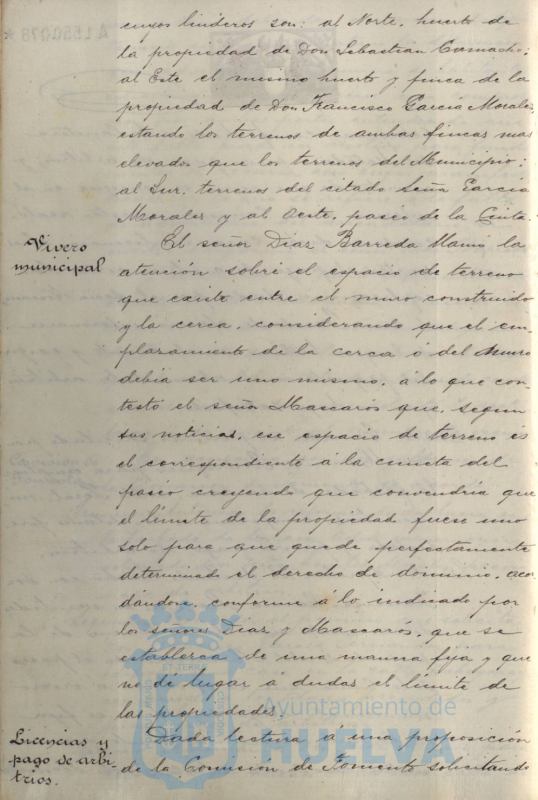 cuyos linderos son: al Norte, huerto de
la propiedad de Don Sebastian Camacho;
al Este el mismo huerto y finca de la
propiedad de Don Francisco García Morales,
estando los terrenos de ambas fincas mas
elevados que los terrenos del Municipio;
al Sur, terrenos del citado Señor García
Morales y al Oeste, paseo de la Cinta.
Vivero
municipal
El señor Diaz Barreda llamó la
atención sobre el espacio de terreno
que existe entre el muro construido
y la cerca, considerando que el em-
plazamiento de la cerca ó del muro
debia ser uno mismo, á lo que con-
testó el señor Mascarós que, segun
sus noticias, ese espacio de terreno es
el correspondiente á la cuneta del
paseo creyendo que convendría que
el límite de la propiedad fuese uno
solo para que quede perfectamente
determinado el derecho de dominio, acor-
dándose, conforme á lo indicado por
los señores Diaz y Mascarós, que se
establezca de una manera fija y que
no dé lugar á dudas el límite de
las propiedades.
Licencias y
pago de arbi-
trios.
Dada lectura á una proposición
de la Comisión de Fomento solicitando
A1550078
Ayuntamiento de
HUELVA